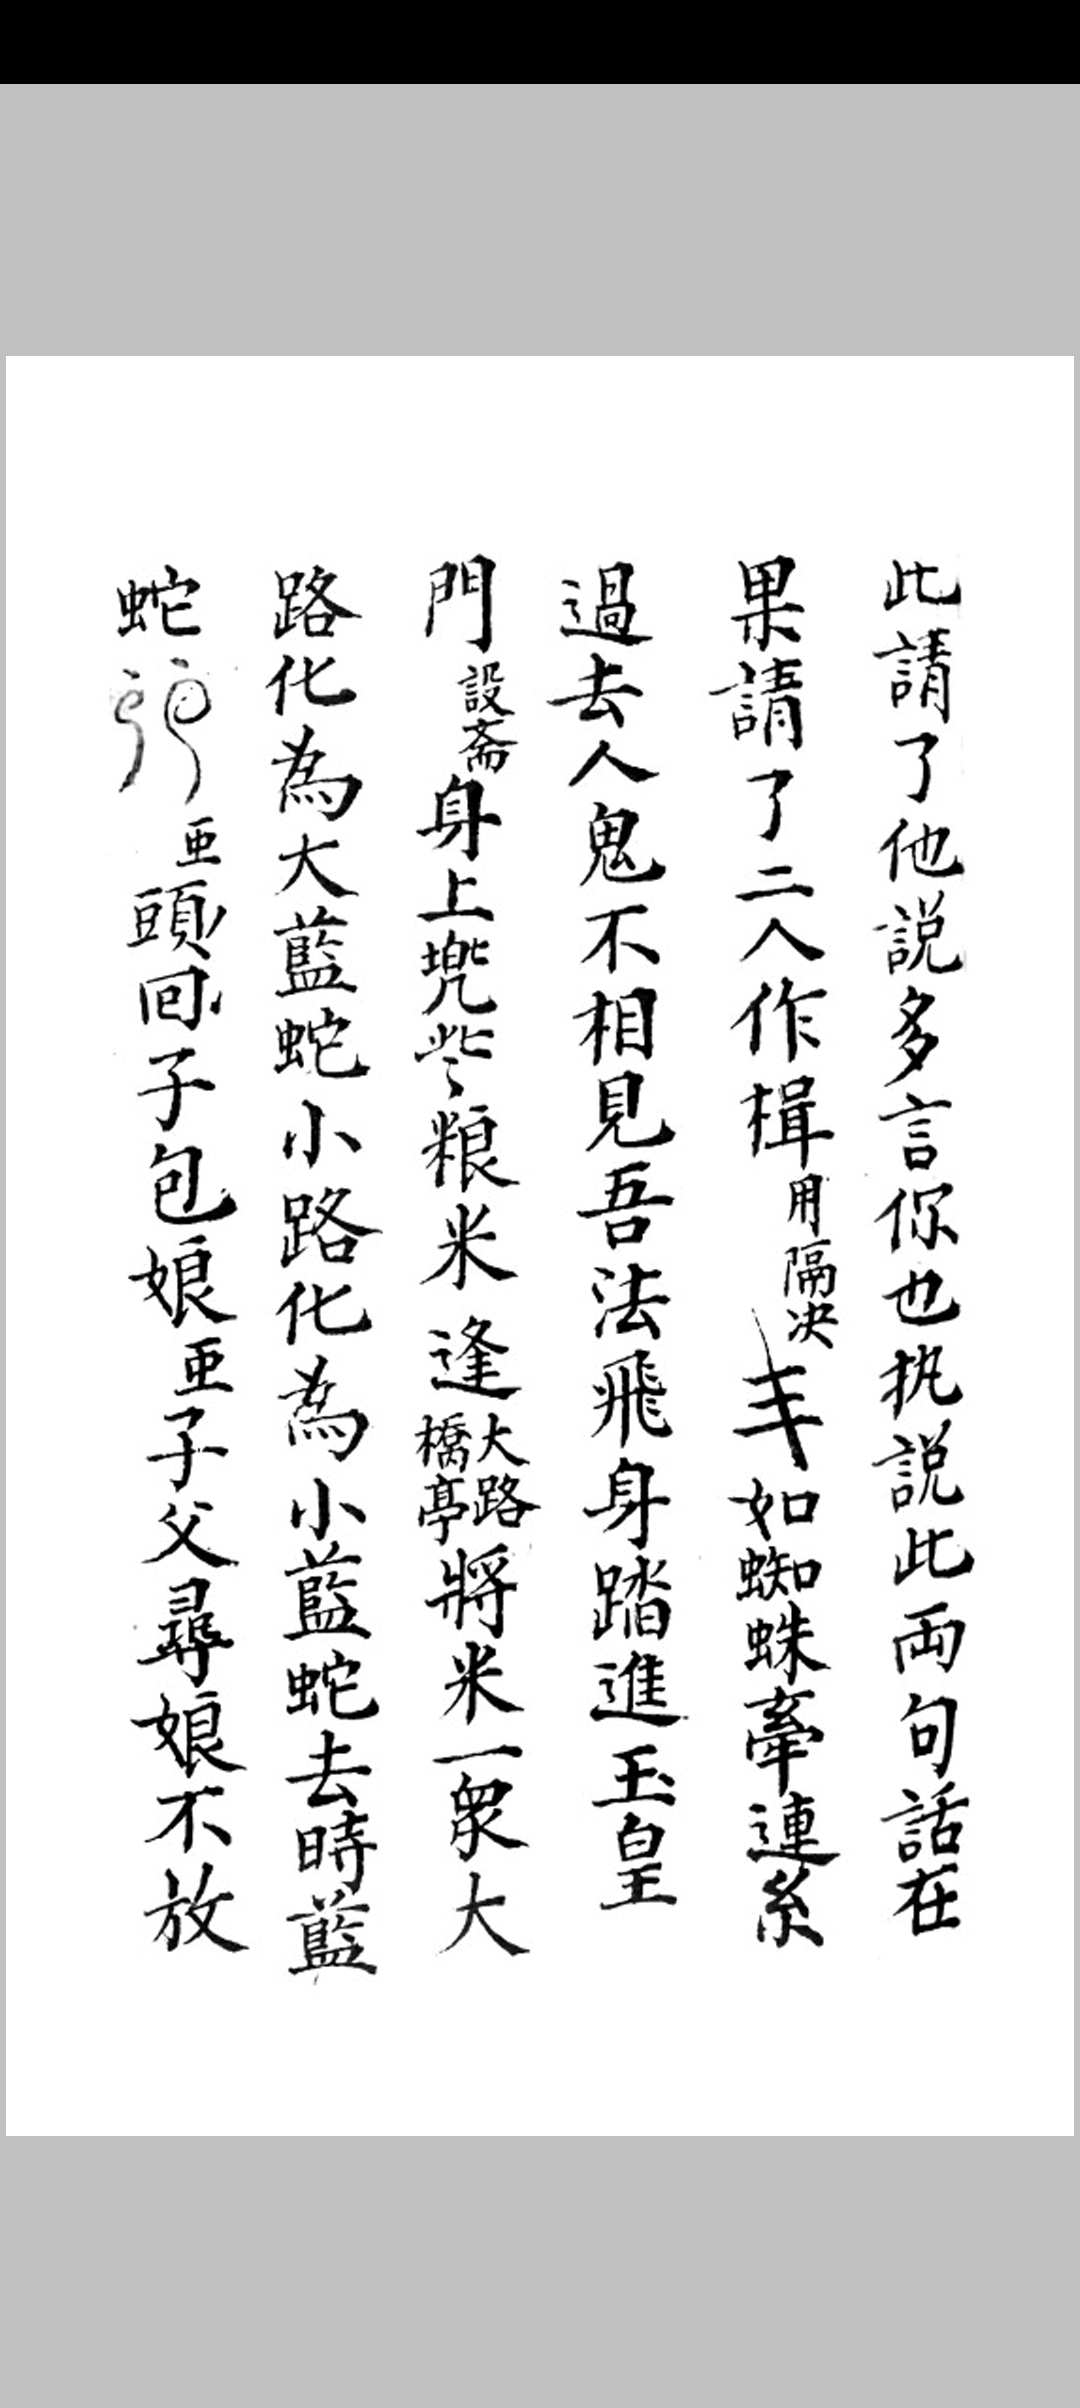 此請了他説多言你也执説此両句話在
果請了二人作楫用隔决 如蜘蛛牽連糸
過去人鬼不相見吾法飛身踏進玉皇
門設斎身上兠些粮米逢大路橋亭將米一衆大
路化為大藍蛇小路化為小藍蛇去時藍
蛇 亜頭回子包娘亜子父尋娘不放